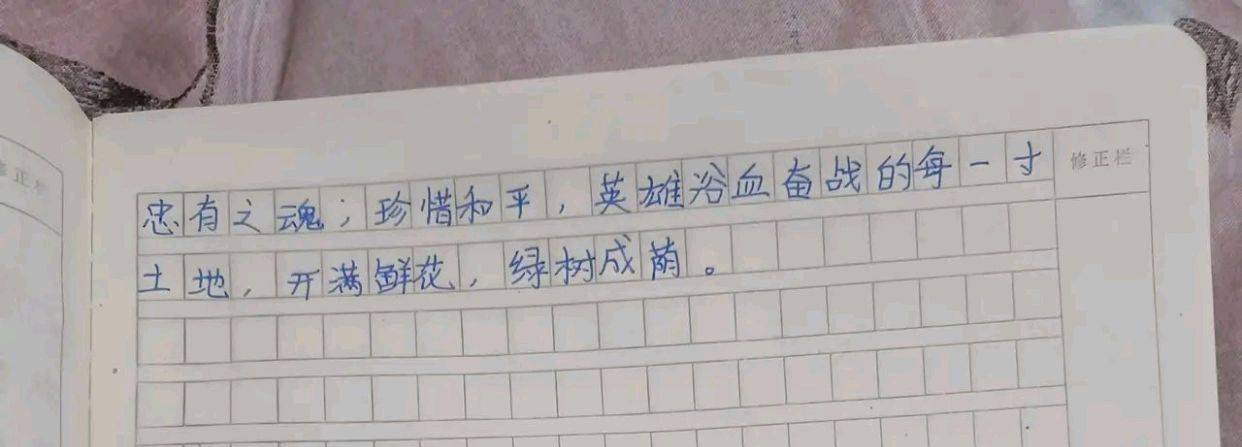 忠有之魂；珍惜和平，英雄浴血奋战的每一寸
修正栏
土地，开满鲜花，绿树成荫。